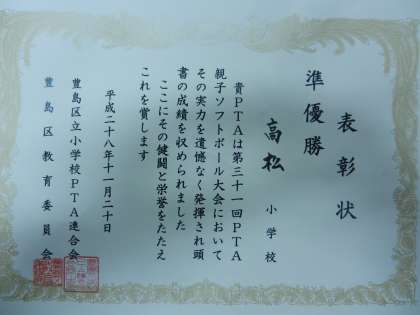 表彰状
準優勝
高松小学校
貴PTAは第三十一回PTA
親子ソフトボール大会において
その実力を遺憾なく発揮され頭
書の成績を収められました
ここにその健闘と栄誉をたたえ
これを賞します
平成二十八年十一月二十日
豊島区立小学校PTA連合会
豊島区教育委員会